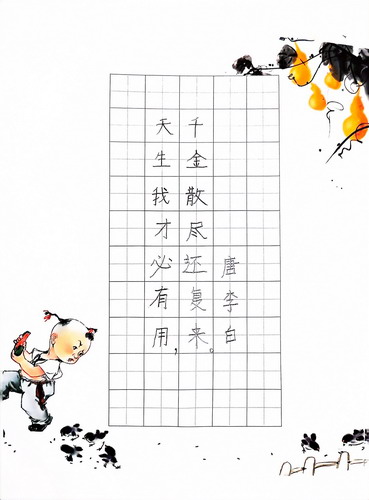 天生我才必有用，
千金散尽还复来。
唐李白